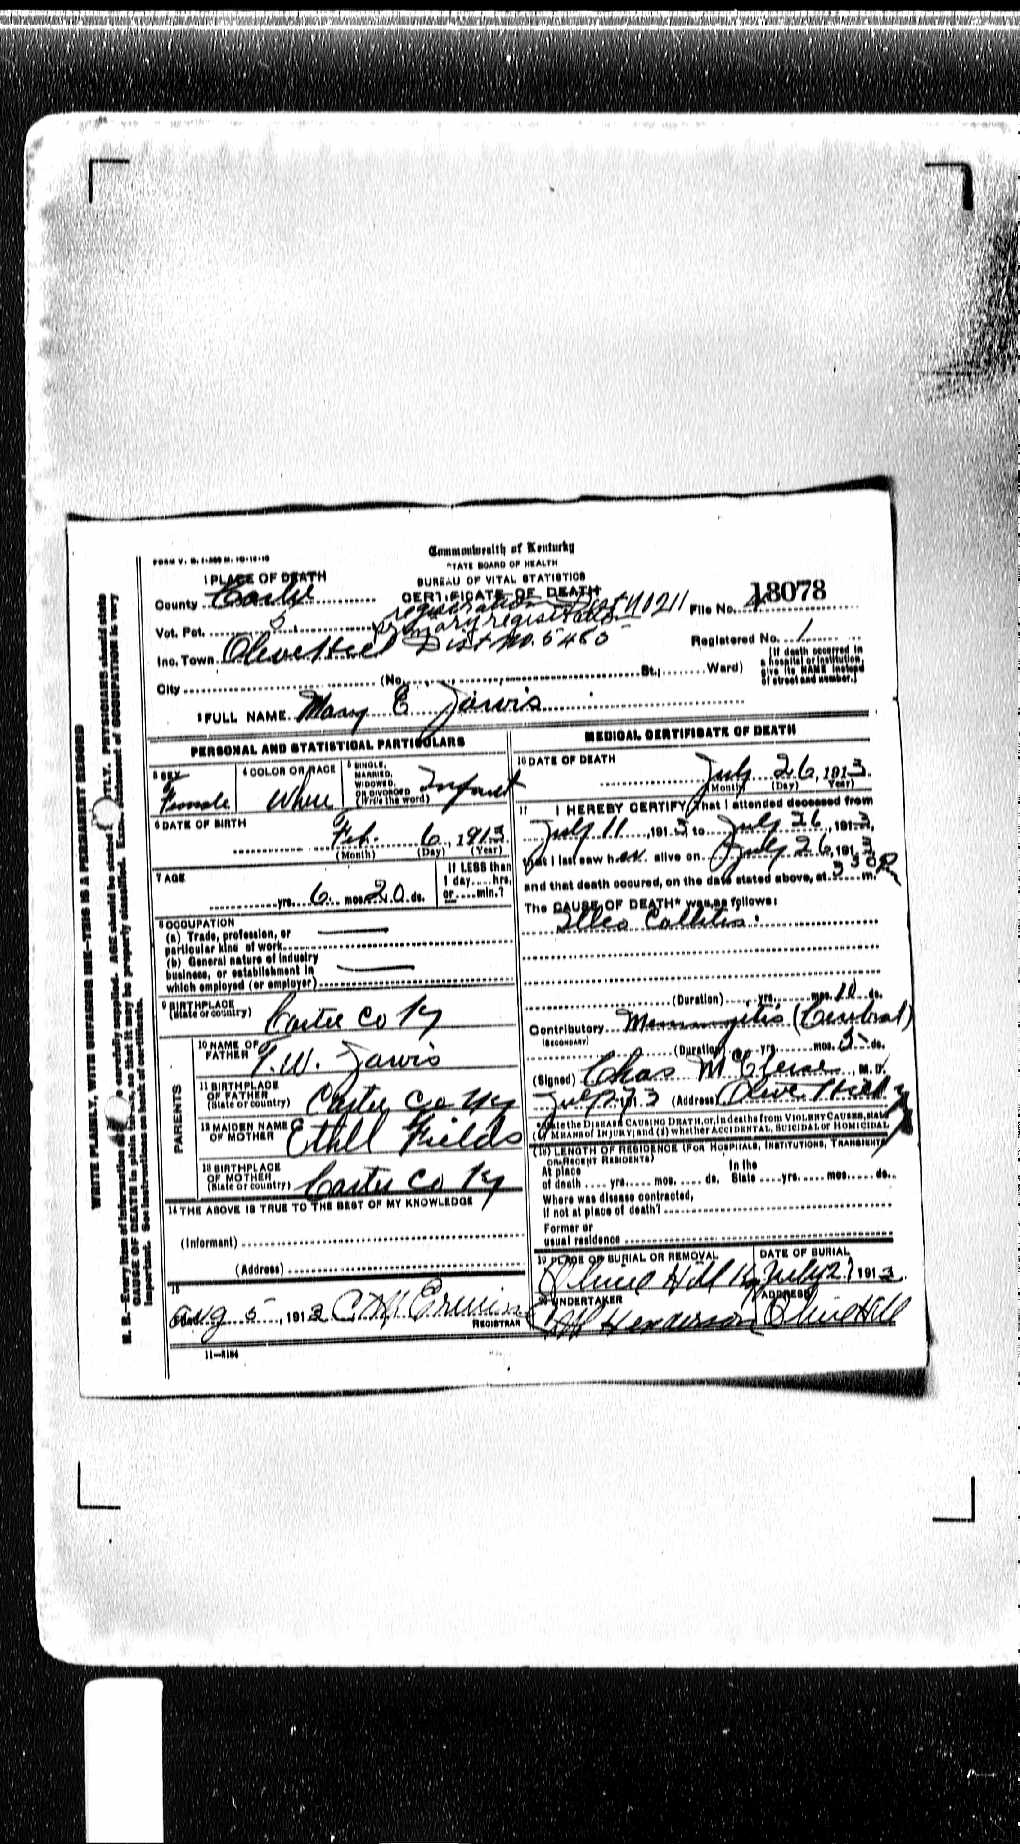 FORM V. S. 1-
Commonwealth of Kentucky
STATE BOARD OF HEALTH
BUREAU OF VITAL STATISTICS
CERTIFICATE OF DEATH
1 PLACE OF DEATH
County Carter
registration Dist No 211
File No. 18078
Vot. Pct. 5
Primary registration
Dist No. 5465
Registered No. 1
Inc. Town Olive Hill
[If death occurred in a hospital or institution, give its NAME instead of street and number.]
City (No. St.; Ward)
2 FULL NAME Mary E Jarvis
PERSONAL AND STATISTICAL PARTICULARS
3 SEX
Female
4 COLOR OR RACE
White
5 SINGLE, MARRIED, WIDOWED, OR DIVORCED (Write the word)
Infant
6 DATE OF BIRTH
Feb. 6, 1913
(Month) (Day) (Year)
7 AGE
yrs. 6 mos. 20 ds.
If LESS than 1 day hrs. or min.?
8 OCCUPATION
(a) Trade, profession, or particular kind of work
(b) General nature of industry business, or establishment in which employed (or employer)
9 BIRTHPLACE
(State or country)
Carter Co Ky
PARENTS
10 NAME OF FATHER
T. W. Jarvis
11 BIRTHPLACE OF FATHER (State or country)
Carter Co Ky
12 MAIDEN NAME OF MOTHER
Ethel Fields
13 BIRTHPLACE OF MOTHER (State or country)
Carter Co Ky
14 THE ABOVE IS TRUE TO THE BEST OF MY KNOWLEDGE
(Informant)
(Address)
15
Aug 5, 1913
REGISTRAR
11-
MEDICAL CERTIFICATE OF DEATH
16 DATE OF DEATH
July 26, 1913
(Month) (Day) (Year)
17 I HEREBY CERTIFY, That I attended deceased from
July 11, 1913 to July 26, 1913,
that I last saw her alive on July 26, 1913
and that death occured, on the date stated above, at m.
The CAUSE OF DEATH* was as follows:
Illeo Collitis.
(Duration) yrs. mos. 10 ds.
Contributory Meningitis (Cerebral)
(SECONDARY)
(Duration) yrs. mos. 5 ds.
(Signed) Chas M , M. D.
July 27 3 (Address) Olive Hill Ky
*State the DISEASE CAUSING DEATH, or, in deaths from VIOLENT CAUSES, state (1) MEANS OF INJURY; and (2) whether ACCIDENTAL, SUICIDAL or HOMICIDAL
(18) LENGTH OF RESIDENCE (FOR HOSPITALS, INSTITUTIONS, TRANSIENTS OR RECENT RESIDENTS)
At place of death yrs. mos. ds. In the State yrs. mos. ds.
Where was disease contracted, if not at place of death?
Former or usual residence
19 PLACE OF BURIAL OR REMOVAL
Olive Hill Ky
DATE OF BURIAL
July 27 1913
20 UNDERTAKER
Henderson
ADDRESS
Olive Hill
WRITE PLAINLY, WITH UNFADING INK—THIS IS A PERMANENT RECORD
N. B.—Every item of information should be carefully supplied. AGE should be stated EXACTLY. PHYSICIANS should state
CAUSE OF DEATH in plain terms, so that it may be properly classified. Exact statement of OCCUPATION is very
important. See instructions on back of certificate.